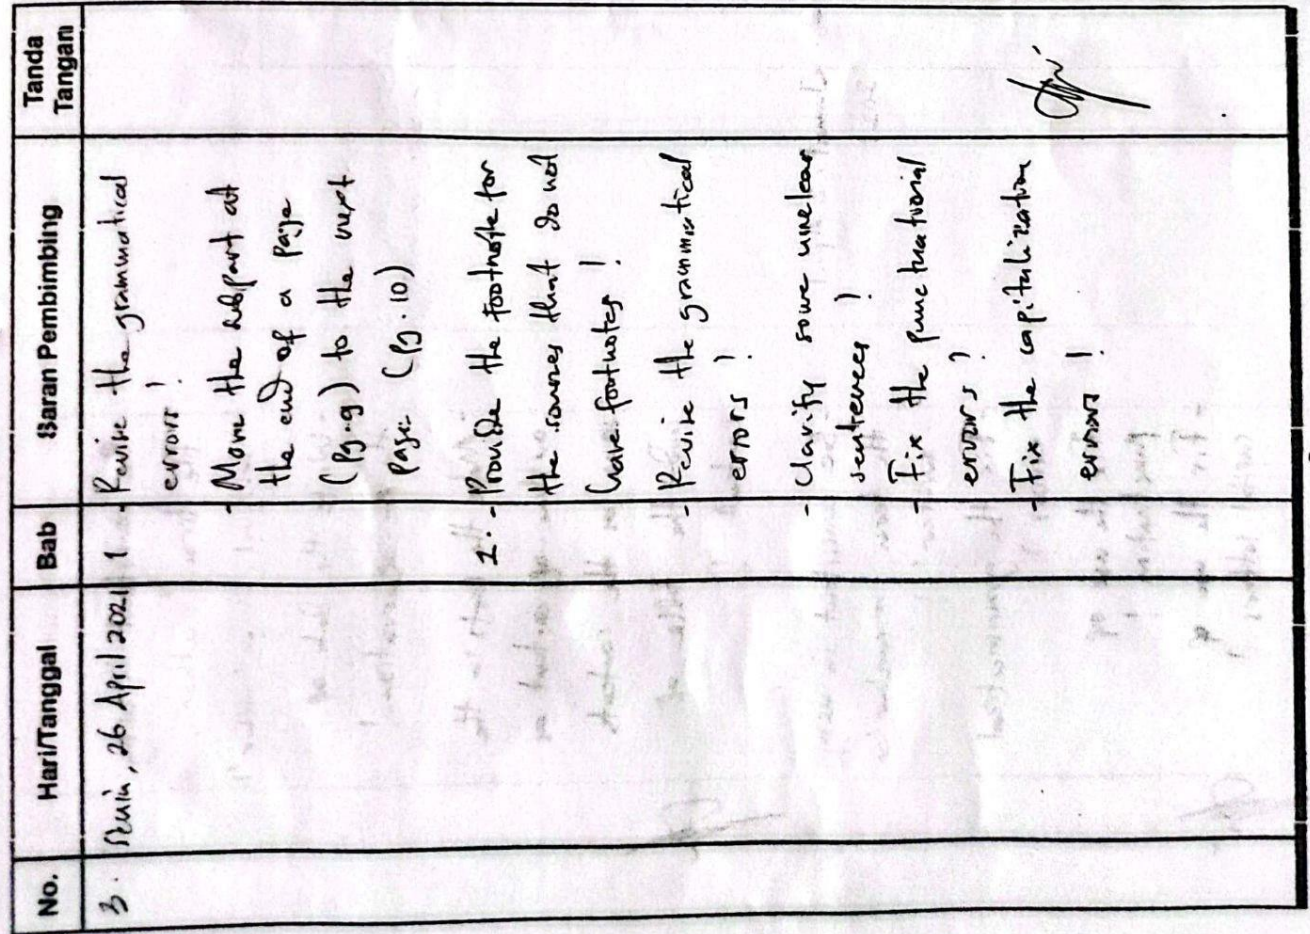 No. Hari/Tanggal Bab Saran Pembimbing Tanda
Tangan
3. Senin, 26 April 2021 1 - Revise the grammatical
errors!
- Move the subpart at
the end of a page
(pg.9) to the next
page (pg.10)
2. - Provide the footnote for
the sources that do not
have footnotes!
- Revise the grammatical
errors!
- Clarify some unclear
sentences!
- Fix the punctuational
errors!
- Fix the capitalization
errors!